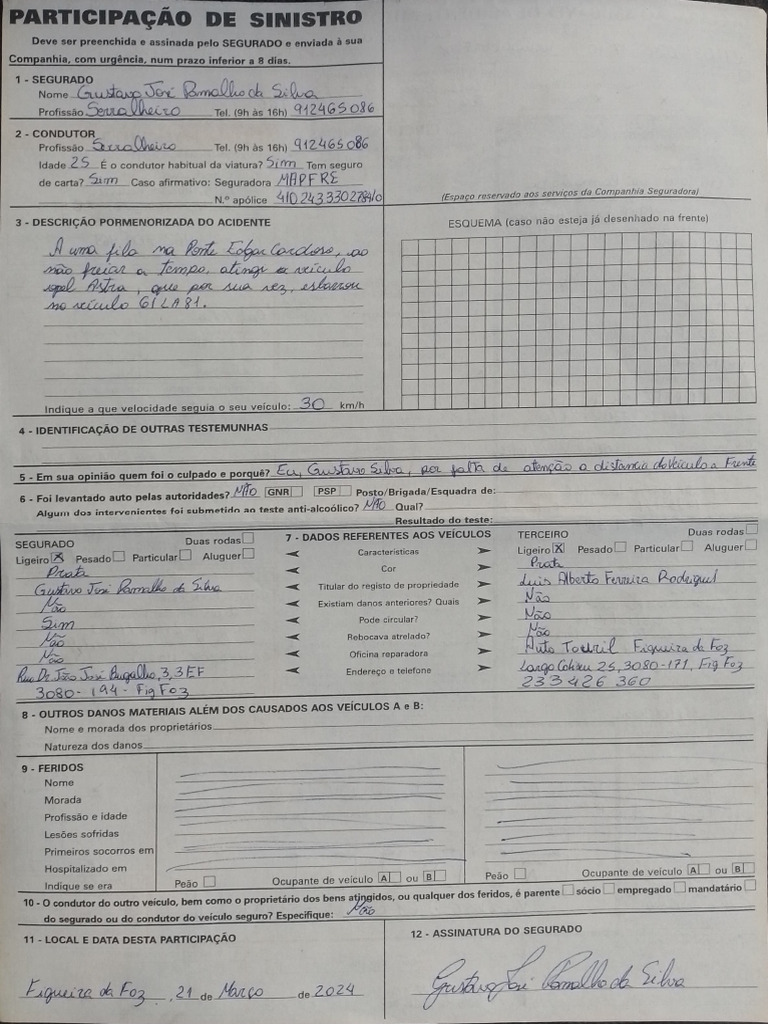 PARTICIPAÇÃO DE SINISTRO
Deve ser preenchida e assinada pelo SEGURADO e enviada à sua
Companhia, com urgência, num prazo inferior a 8 dias.
1 - SEGURADO
Nome Gustavo José Ramalho da Silva
Profissão Serralheiro Tel. (9h às 16h) 912465086
2 - CONDUTOR
Profissão Serralheiro Tel. (9h às 16h) 912465086
Idade 25 É o condutor habitual da viatura? Sim Tem seguro
de carta? Sim Caso afirmativo: Seguradora MAPFRE
N.º apólice
(Espaço reservado aos serviços da Companhia Seguradora)
3 - DESCRIÇÃO PORMENORIZADA DO ACIDENTE
A uma fila na Ponte Edgar Cardoso, ao
não freiar a tempo, atingi o veículo
opel Astra, que por sua vez, esbarrou
no veículo 61LA81.
Indique a que velocidade seguia o seu veículo: 30 km/h
ESQUEMA (caso não esteja já desenhado na frente)
4 - IDENTIFICAÇÃO DE OUTRAS TESTEMUNHAS
5 - Em sua opinião quem foi o culpado e porquê? Eu, Gustavo Silva, por falta de atenção a distancia do Veículo a Frente
6 - Foi levantado auto pelas autoridades? NÃO GNR PSP Posto/Brigada/Esquadra de:
Algum dos intervenientes foi submetido ao teste anti-alcoólico? NÃO Qual?
Resultado do teste:
7 - DADOS REFERENTES AOS VEÍCULOS
SEGURADO Duas rodas
Ligeiro X Pesado Particular Aluguer
Prata
Gustavo José Ramalho da Silva
Não
Sim
Não
Não
Rua Dr. João José Bugalho, 3, 3EF
3080-194 - Fig Foz
Características
Cor
Titular do registo de propriedade
Existiam danos anteriores? Quais
Pode circular?
Rebocava atrelado?
Oficina reparadora
Endereço e telefone
TERCEIRO Duas rodas
Ligeiro X Pesado Particular Aluguer
Prata
Luis Alberto Ferreira Rodrigues
Não
Não
Não
Auto Figueira da Foz
Largo 25, 3080-171, Fig Foz
233426 360
8 - OUTROS DANOS MATERIAIS ALÉM DOS CAUSADOS AOS VEÍCULOS A e B:
Nome e morada dos proprietários
Natureza dos danos
9 - FERIDOS
Nome
Morada
Profissão e idade
Lesões sofridas
Primeiros socorros em
Hospitalizado em
Indique se era Peão Ocupante de veículo A ou B Peão Ocupante de veículo A ou B
10 - O condutor do outro veículo, bem como o proprietário dos bens atingidos, ou qualquer dos feridos, é parente sócio empregado mandatário
do segurado ou do condutor do veículo seguro? Especifique: Não
11 - LOCAL E DATA DESTA PARTICIPAÇÃO
Figueira da Foz, 21 de Março de 2024
12 - ASSINATURA DO SEGURADO
Gustavo José Ramalho da Silva